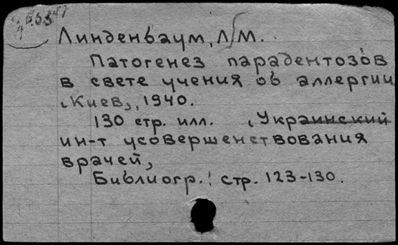 Линденбаум, Л М.
Патогенез парадентозов
в свете учения об аллергии
(Киев), 1940.
130 стр. илл. (Украинский
ин-т усовершенствования
врачей)
Библиогр.: стр. 123-130.